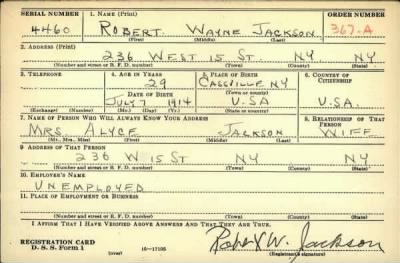 SERIAL NUMBER 1. NAME (Print) ORDER NUMBER
4460 ROBERT WAYNE JACKSON 367-A
(First) (Middle) (Last)
2. ADDRESS (Print)
236 WEST 15 ST. NY NY
(Number and street or R. F. D. number) (Town) (County) (State)
3. TELEPHONE 4. AGE IN YEARS 5. PLACE OF BIRTH 6. COUNTRY OF CITIZENSHIP
29 CASSVILLE NY
DATE OF BIRTH (Town or county)
JULY 7 1914 USA U.S.A.
(Exchange) (Number) (Mo.) (Day) (Yr.) (State or country)
7. NAME OF PERSON WHO WILL ALWAYS KNOW YOUR ADDRESS 8. RELATIONSHIP OF THAT PERSON
MRS. ALYCE JACKSON WIFE
(Mr., Mrs., Miss) (First) (Middle) (Last)
9. ADDRESS OF THAT PERSON
236 W 15 ST NY NY
(Number and street or R. F. D. number) (Town) (County) (State)
10. EMPLOYER'S NAME
UNEMPLOYED
11. PLACE OF EMPLOYMENT OR BUSINESS
(Number and street or R. F. D. number) (Town) (County) (State)
I AFFIRM THAT I HAVE VERIFIED ABOVE ANSWERS AND THAT THEY ARE TRUE.
REGISTRATION CARD
D. S. S. Form 1 (over) 16-17105 Robert W. Jackson
(Registrant's signature)